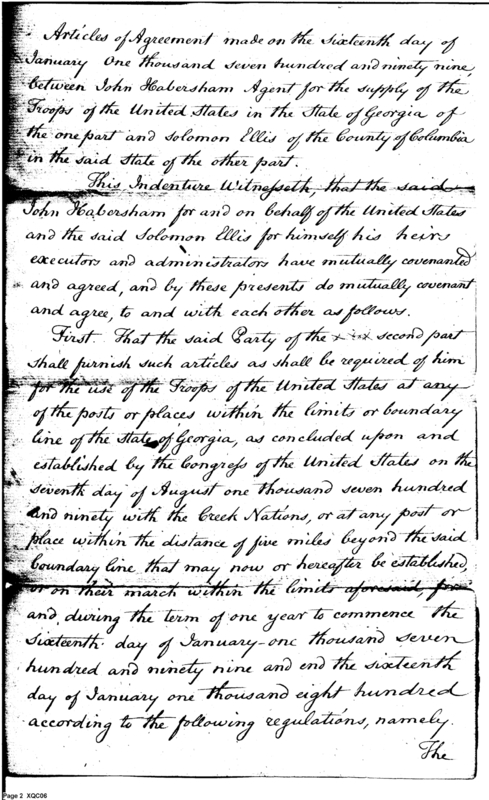 Articles of Agreement made on the Sixteenth day of
January One thousand seven hundred and ninety nine,
between John Habersham Agent for the supply of the
Troops of the United States in the State of Georgia of
the one part and Solomon Ellis of the County of Columbia
in the said State of the other part.
This Indenture Witnesseth, that the said
John Habersham for and on behalf of the United States
and the said Solomon Ellis for himself his heirs
executors and administrators have mutually covenanted
and agreed, and by these presents do mutually covenant
and agree, to and with each other as follows.
First. That the said Party of the second part
shall furnish such articles as shall be required of him
for the use of the Troops of the United States at any
of the posts or places within the limits or boundary
line of the State of Georgia, as concluded upon and
established by the Congress of the United States on the
seventh day of August one thousand seven hundred
and ninety with the Creek Nations, or at any post or
place within the distance of five miles beyond the said
boundary line that may now or hereafter be established,
or on their march within the limits aforesaid, for
and, during the term of one year to commence the
Sixteenth day of January-one thousand seven
hundred and ninety nine and end the sixteenth
day of January one thousand eight hundred
according to the following regulations, namely.
The
Page 2 XQC06